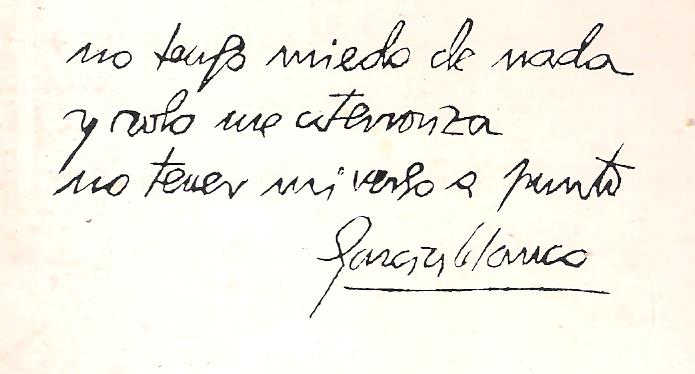 no tengo miedo de nada
y solo me aterroriza
no tener mi verso a punto
garcia blanco